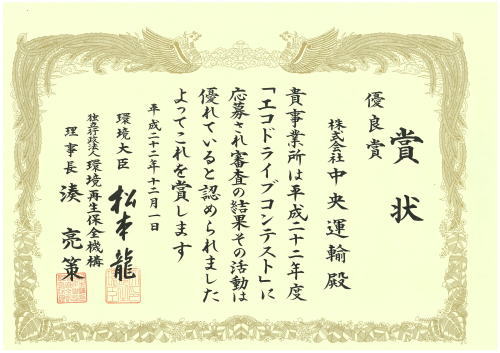 賞状
優良賞
株式会社中央運輸殿
貴事業所は平成二十二年度
「エコドライブコンテスト」に
応募され審査の結果その活動は
優れていると認められました
よってこれを賞します
平成二十二年十二月一日
環境大臣 松本龍
独立行政法人環境再生保全機構
理事長 湊 亮策